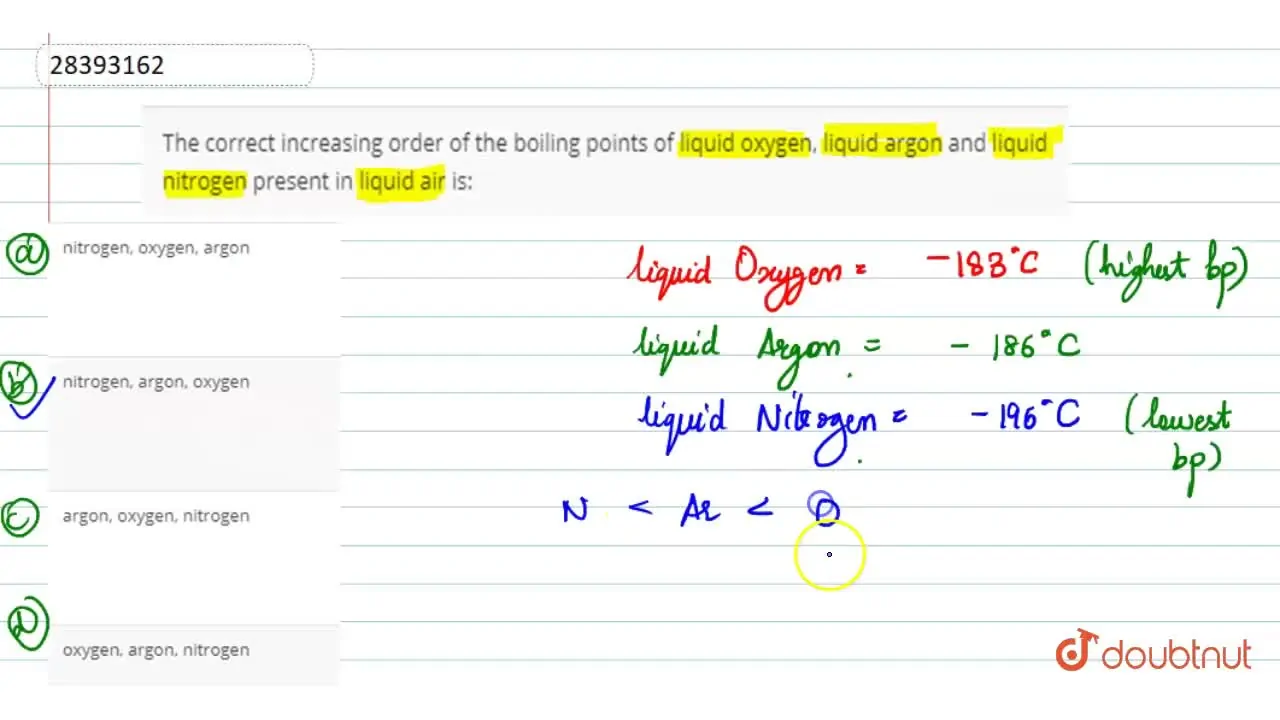 28393162
The correct increasing order of the boiling points of liquid oxygen, liquid argon and liquid
nitrogen present in liquid air is:
a nitrogen, oxygen, argon
b nitrogen, argon, oxygen
c argon, oxygen, nitrogen
d oxygen, argon, nitrogen
liquid Oxygen = -183°C (highest bp)
liquid Argon = - 186°C
liquid Nitrogen = -196°C (lowest
bp)
N < Ar < O
doubtnut